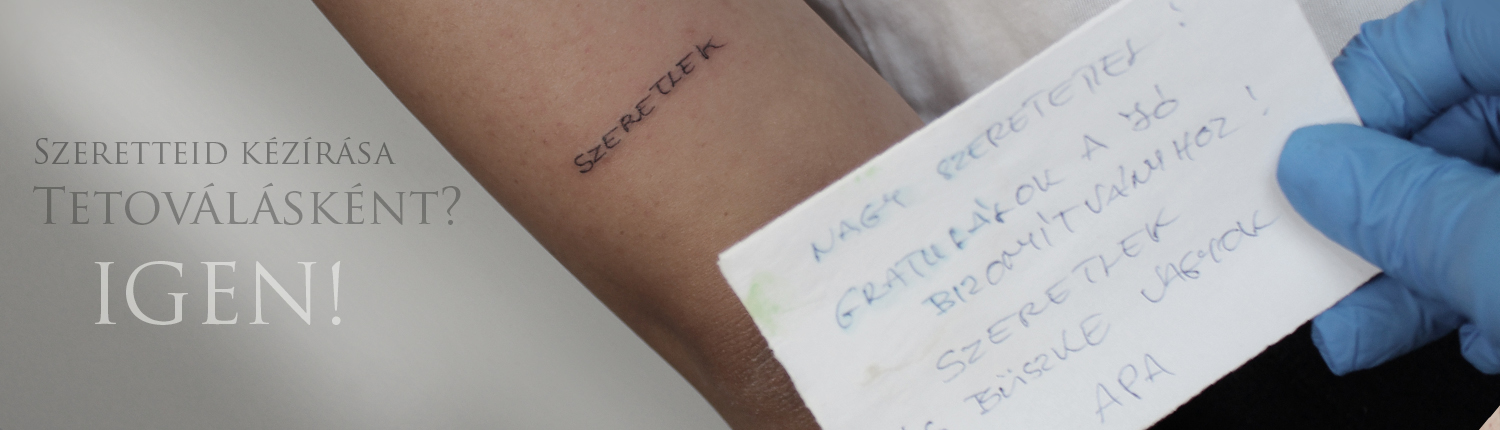 SZERETTEID KÉZÍRÁSA
TETOVÁLÁSKÉNT?
IGEN!
SZERETLEK
NAGY SZERETETTEL!
GRATULÁLOK A JÓ
BIZONYÍTVÁNYHOZ!
SZERETLEK
ÉS BÜSZKE VAGYOK
APA